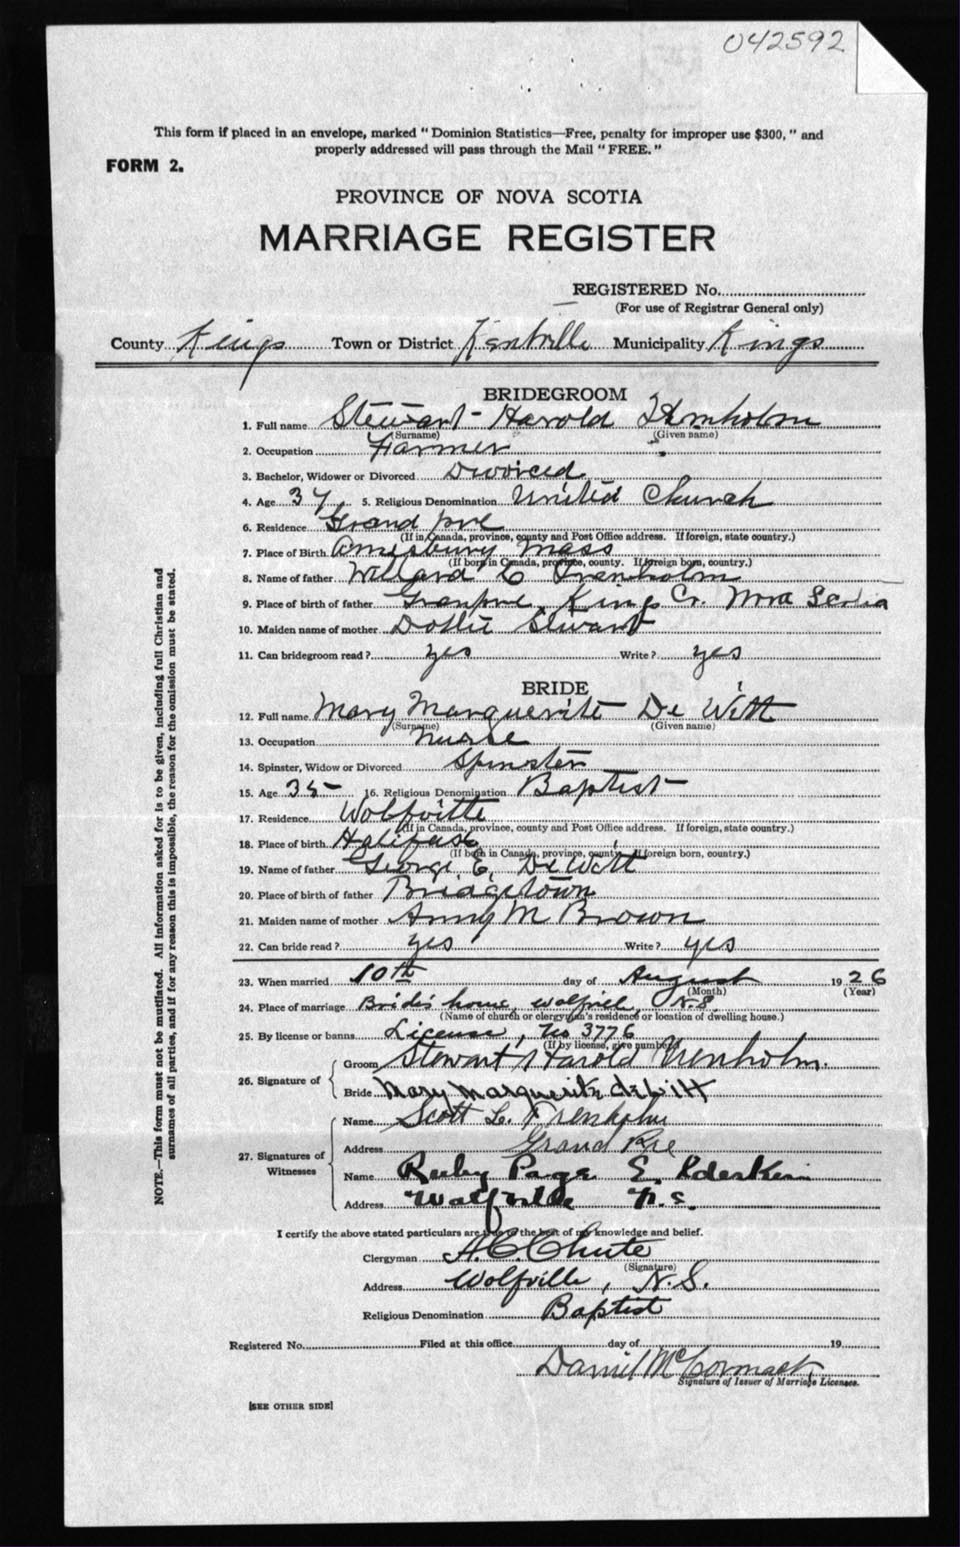 042592
This form if placed in an envelope, marked " Dominion Statistics—Free, penalty for improper use $300, " and
properly addressed will pass through the Mail " FREE. "
FORM 2.
PROVINCE OF NOVA SCOTIA
MARRIAGE REGISTER
REGISTERED No.
(For use of Registrar General only)
County Kings Town or District Kentville Municipality Kings
BRIDEGROOM
1. Full name Stewart Harold Trenholm
(Surname) (Given name)
2. Occupation Farmer
3. Bachelor, Widower or Divorced Divorced
4. Age 37 5. Religious Denomination United Church
6. Residence Grand pre
(If in Canada, province, county and Post Office address. If foreign, state country.)
7. Place of Birth Amesbury Mass
(If born in Canada, province, county. If foreign born, country.)
8. Name of father Willard C Trenholm
9. Place of birth of father Granpre Kings Co. Nova Scotia
10. Maiden name of mother Dollie Stewart
11. Can bridegroom read ? yes Write ? yes
BRIDE
12. Full name Mary Marguerite De Witt
(Surname) (Given name)
13. Occupation nurse
14. Spinster, Widow or Divorced Spinster
15. Age 35 16. Religious Denomination Baptist
17. Residence Wolfville
(If in Canada, province, county and Post Office address. If foreign, state country.)
18. Place of birth Halifax
(If born in Canada, province, county. If foreign born, country.)
19. Name of father George E. De Witt
20. Place of birth of father Bridgetown
21. Maiden name of mother Anny M Brown
22. Can bride read ? yes Write ? yes
23. When married 10th day of August 1926
(Month) (Year)
24. Place of marriage Bride's home, N.S.
(Name of church or clergyman's residence or location of dwelling house.)
25. By license or banns License, No 3776
(If by license, give number)
26. Signature of
Groom Stewart Harold Trenholm.
Bride Mary Marguerite deWitt
27. Signatures of Witnesses
Name Scott L. Trenholm
Address Grand Pre
Name Ruby Page E.
Address Wolfville N.S.
I certify the above stated particulars are true to the best of my knowledge and belief.
Clergyman A.C. Chute
(Signature)
Address Wolfville, N.S.
Religious Denomination Baptist
Registered No. Filed at this office day of 19
Daniel McCormack
Signature of Issuer of Marriage Licenses.
[SEE OTHER SIDE]
NOTE.—This form must not be mutilated. All information asked for is to be given, including full Christian and
surnames of all parties, and if for any reason this is impossible, the reason for the omission must be stated.